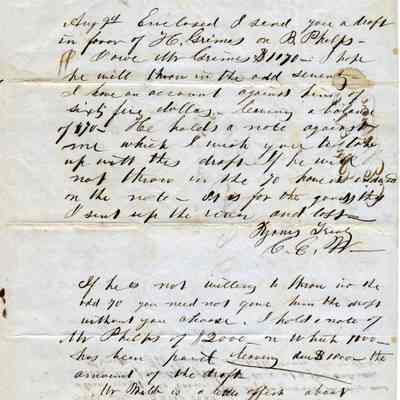 Aug 9th Enclosed I send you a draft
in favor of H. Grimes on B Phelps —
I owe Mr Grimes $1070 — I hope
he will throw in the odd seventy —
I have an account against him of
sixty five dollars leaving a balance
of $70 — He holds a note against
me which I wish you to take
up with this draft. If he will
not throw in the 70 have it
on the note — It is for the goods that
I sent up the river and lost —
Yours Truly
C. C. W—
If he is not willing to throw in the
odd 70 you need not give him the draft
without you choose. I hold a note of
Mr Phelps of $2000 — on which 1000 —
has been paid leaving due $1000 — the
amount of the draft
Mr is a little about